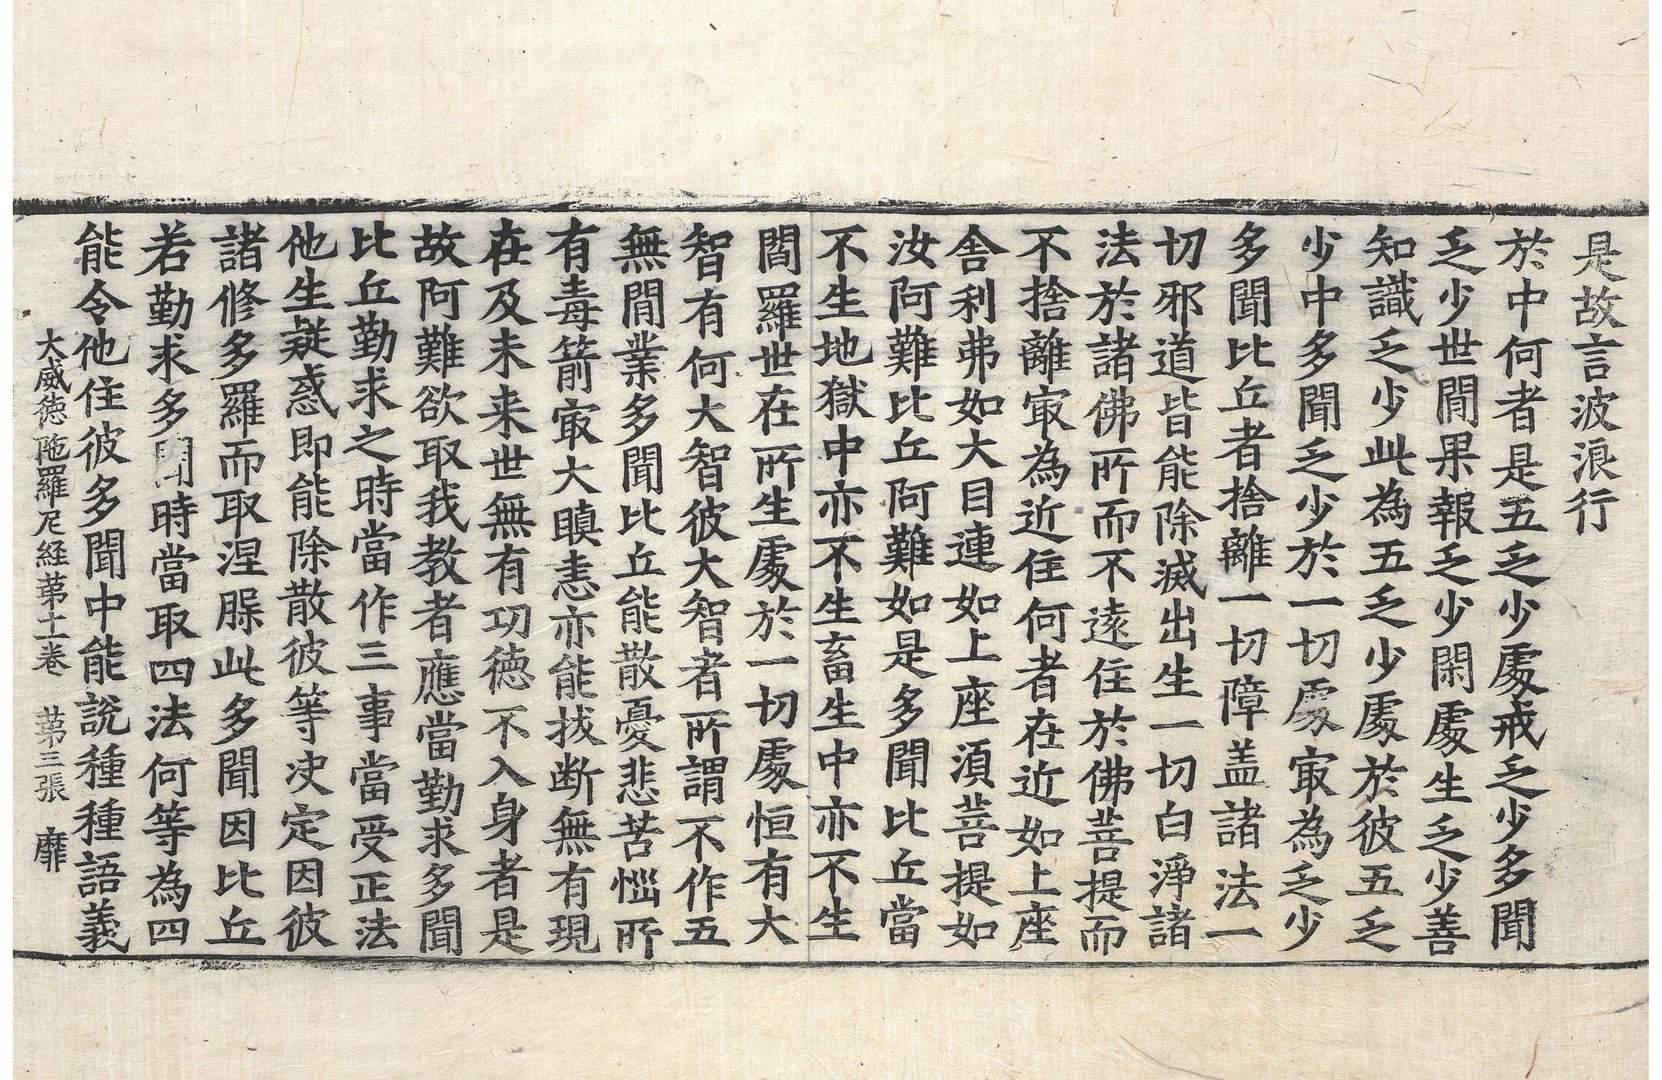 是故言波浪行
於中何者是五乏少處戒乏少多聞
乏少世間果報乏少閑處生乏少善
知識乏少此為五乏少處於彼五乏
少中多聞乏少於一切處㝡為乏少
多聞比丘者捨離一切障盖諸法一
切邪道皆能除滅出生一切白淨諸
法於諸佛所而不遠住於佛菩提而
不捨離㝡為近住何者在近如上座
舍利弗如大目連如上座湏菩提如
汝阿難比丘阿難如是多聞比丘當
不生地獄中亦不生畜生中亦不生
閻羅世在所生處於一切處恒有大
智有何大智彼大智者所謂不作五
無間業多聞比丘能散憂悲苦惱所
有毒箭㝡大瞋恚亦能拔断無有現
在及未来世無有功德不入身者是
故阿難欲取我教者應當勤求多聞
比丘勤求之時當作三事當受正法
他生疑惑即能除散彼等决定因彼
諸修多羅而取涅槃此多聞因比丘
若勤求多聞時當取四法何等為四
能令他住彼多聞中能說種種語義
大威德陁羅尼経苐十一卷 苐三張 靡